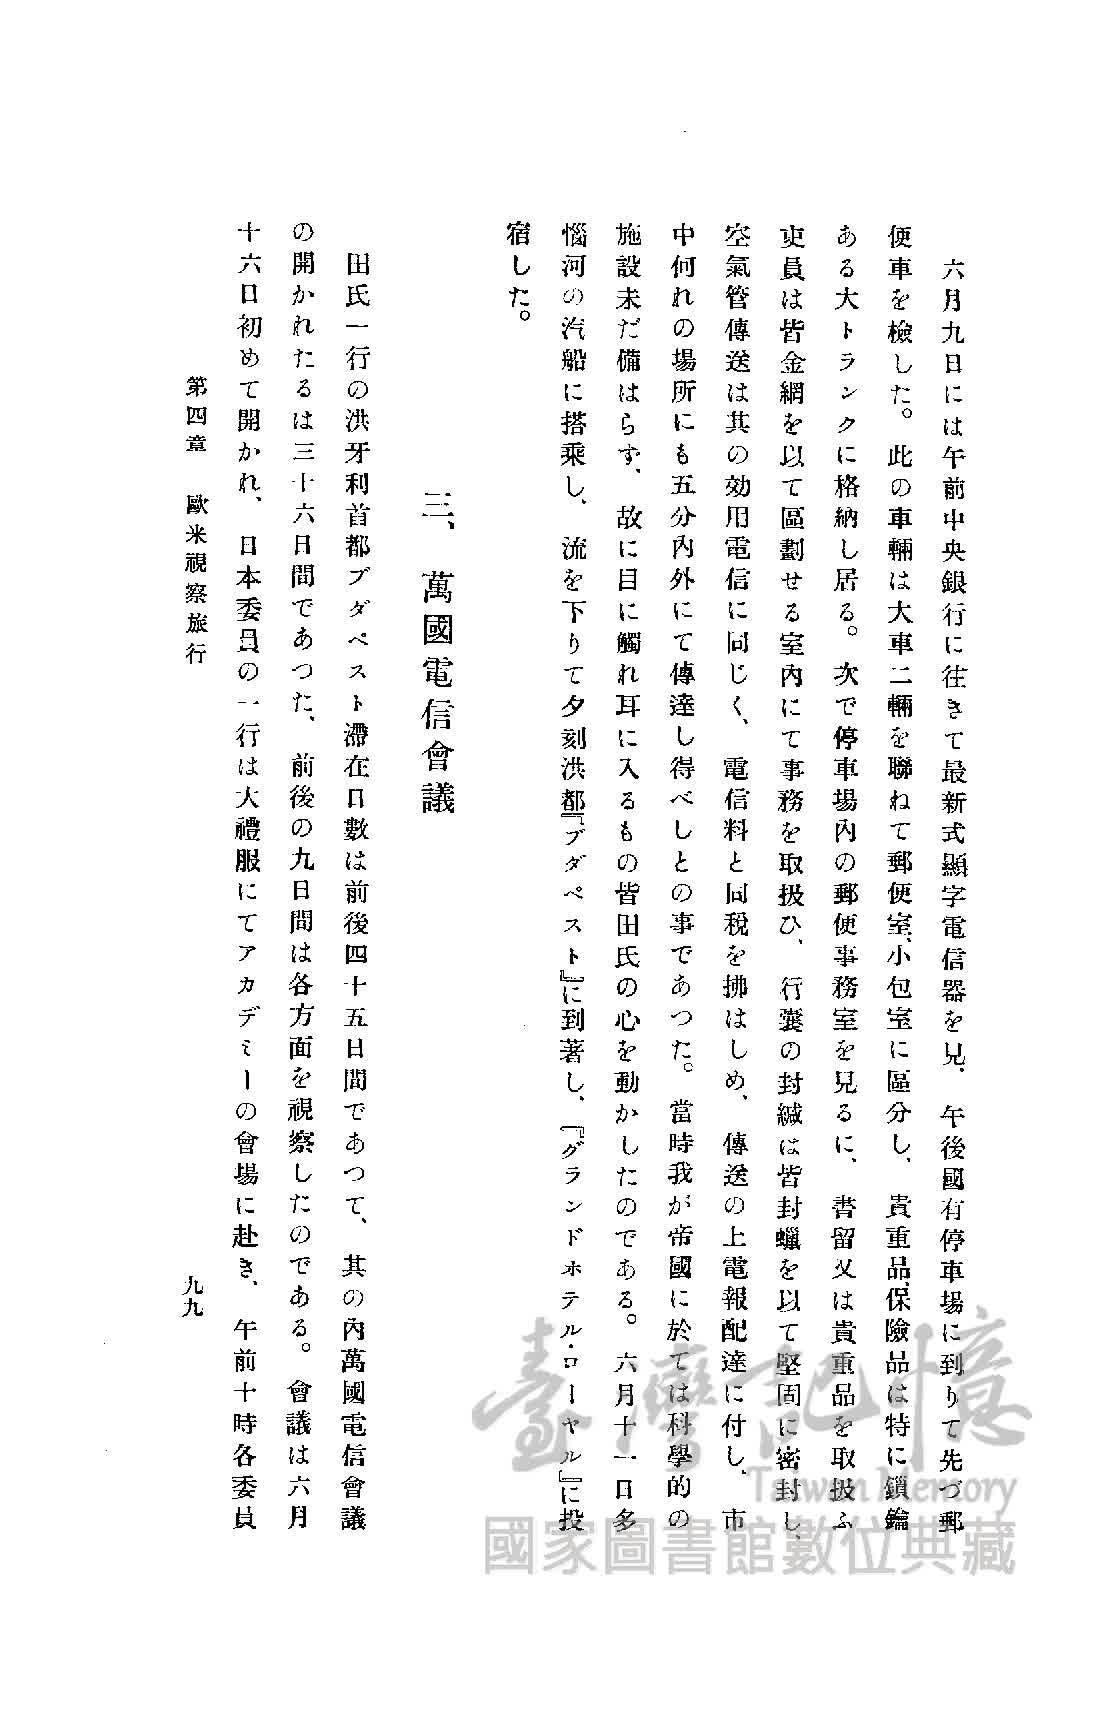 六月九日には午前中央銀行に往きて最新式顯字電信器を見、午後國有停車場に到りて先づ郵
便車を檢した。此の車輛は大車二輛を聯ねて郵便室、小包室に區分し、貴重品、保險品は特に鎖鑰
ある大トランクに格納し居る。次で停車場内の郵便事務室を見るに、書留又は貴重品を取扱ふ
吏員は皆金網を以て區劃せる室内にて事務を取扱ひ、行嚢の封緘は皆封蠟を以て堅固に密封し、
空氣管傳送は其の効用電信に同じく、電信料と同税を拂はしめ、傳送の上電報配達に付し、市
中何れの場所にも五分内外にて傳達し得べしとの事であつた。當時我が帝國に於ては科學的の
施設未だ備はらず、故に目に觸れ耳に入るもの皆田氏の心を動かしたのである。六月十一日多
惱河の汽船に搭乘し、流を下りて夕刻洪都『ブダペスト』に到著し、『グランドホテル・ローヤル』に投
宿した。
三、萬國電信會議
田氏一行の洪牙利首都ブダペスト滯在日數は前後四十五日間であつて、其の内萬國電信會議
の開かれたるは三十六日間であつた、前後の九日間は各方面を視察したのである。會議は六月
十六日初めて開かれ、日本委員の一行は大禮服にてアカデミーの會場に赴き、午前十時各委員
第四章 歐米視察旅行
九九
臺灣記憶
Taiwan Memory
國家圖書館數位典藏